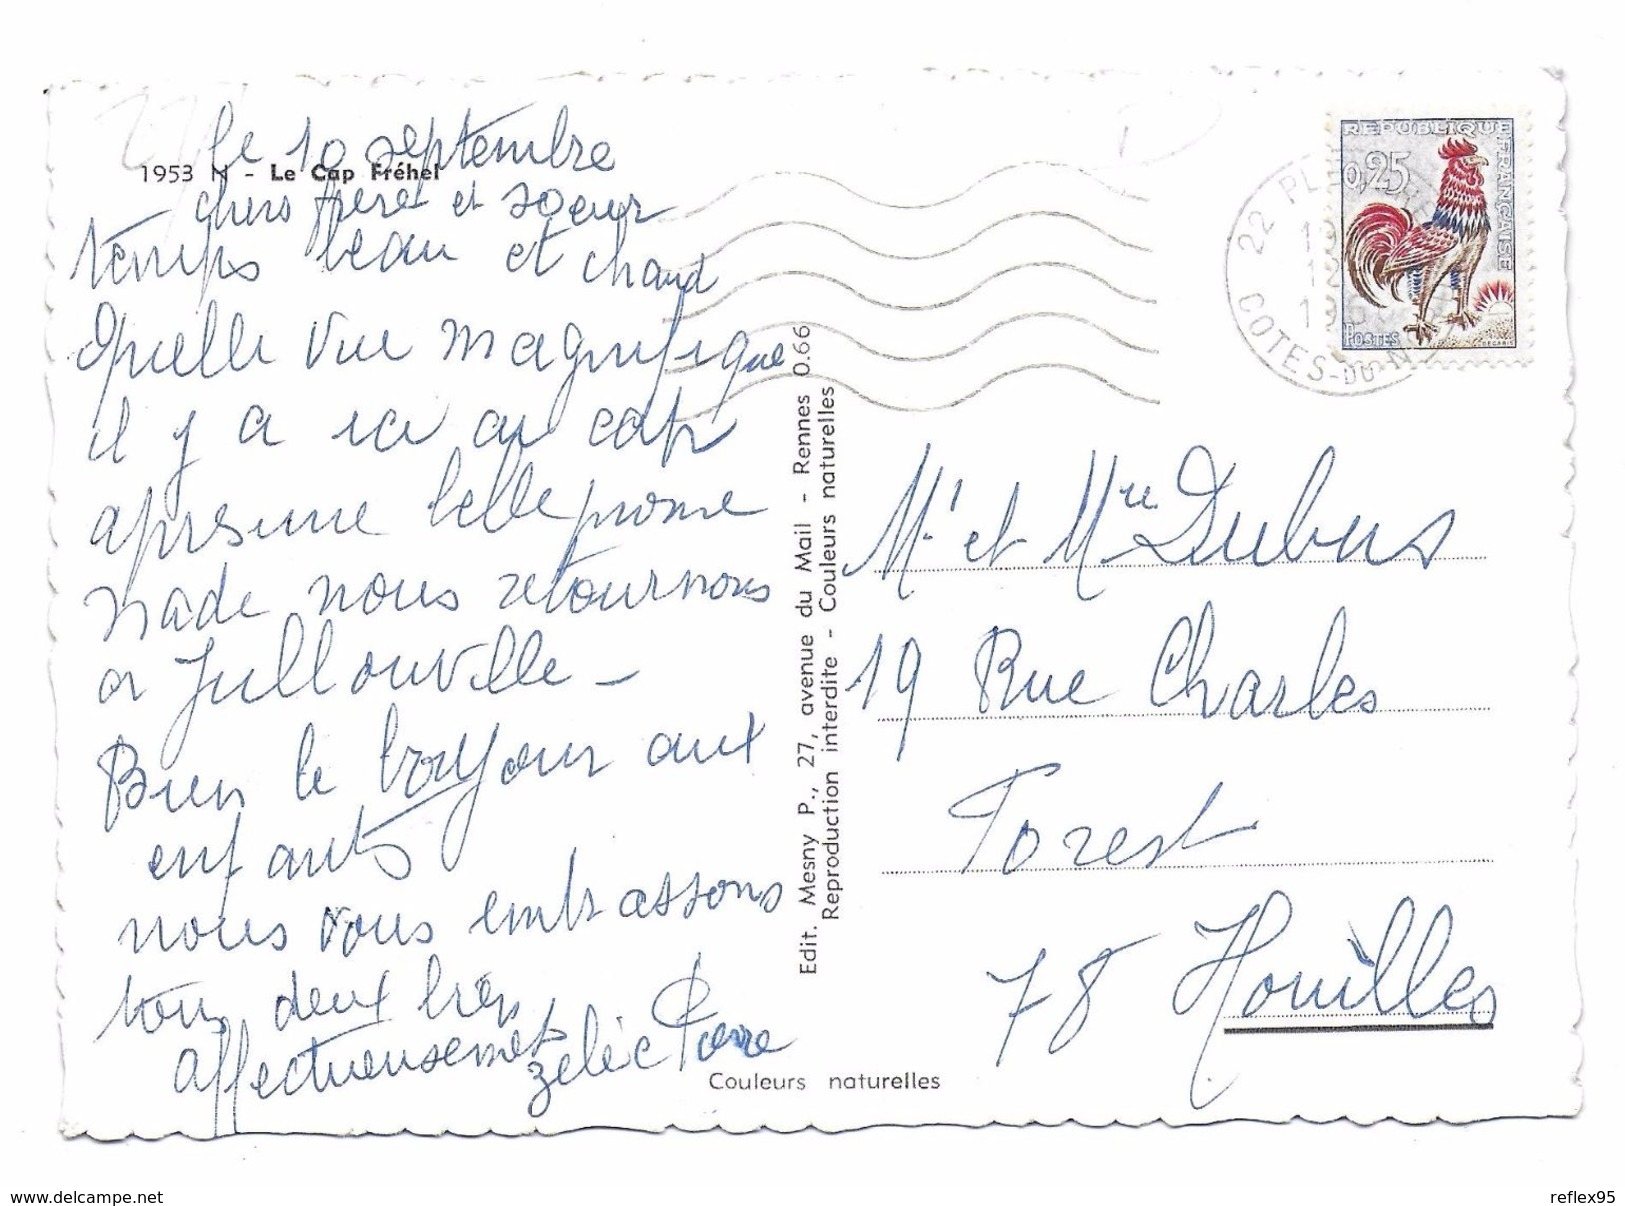 1953 N - Le Cap Fréhel
le 10 septembre
chers frere et soeur
temps beau et chaud
Quelle vue magnifique
il y a ici au cap
apres une belle prome
nade nous retournons
a Jullouville -
Bien le bonjour aux
enfants
nous vous embrassons
tous deux tres
affectueusement
Edit. Mesny P., 27, avenue du Mail - Rennes 0.66
Reproduction interdite - Couleurs naturelles
Couleurs naturelles
REPUBLIQUE
FRANÇAISE
0,25
POSTES
DECARIS
22 PL
COTES-DU-N
Mr et Mme Dubus
19 Rue Charles
Forest
78 Houilles
www.delcampe.net
reflex95